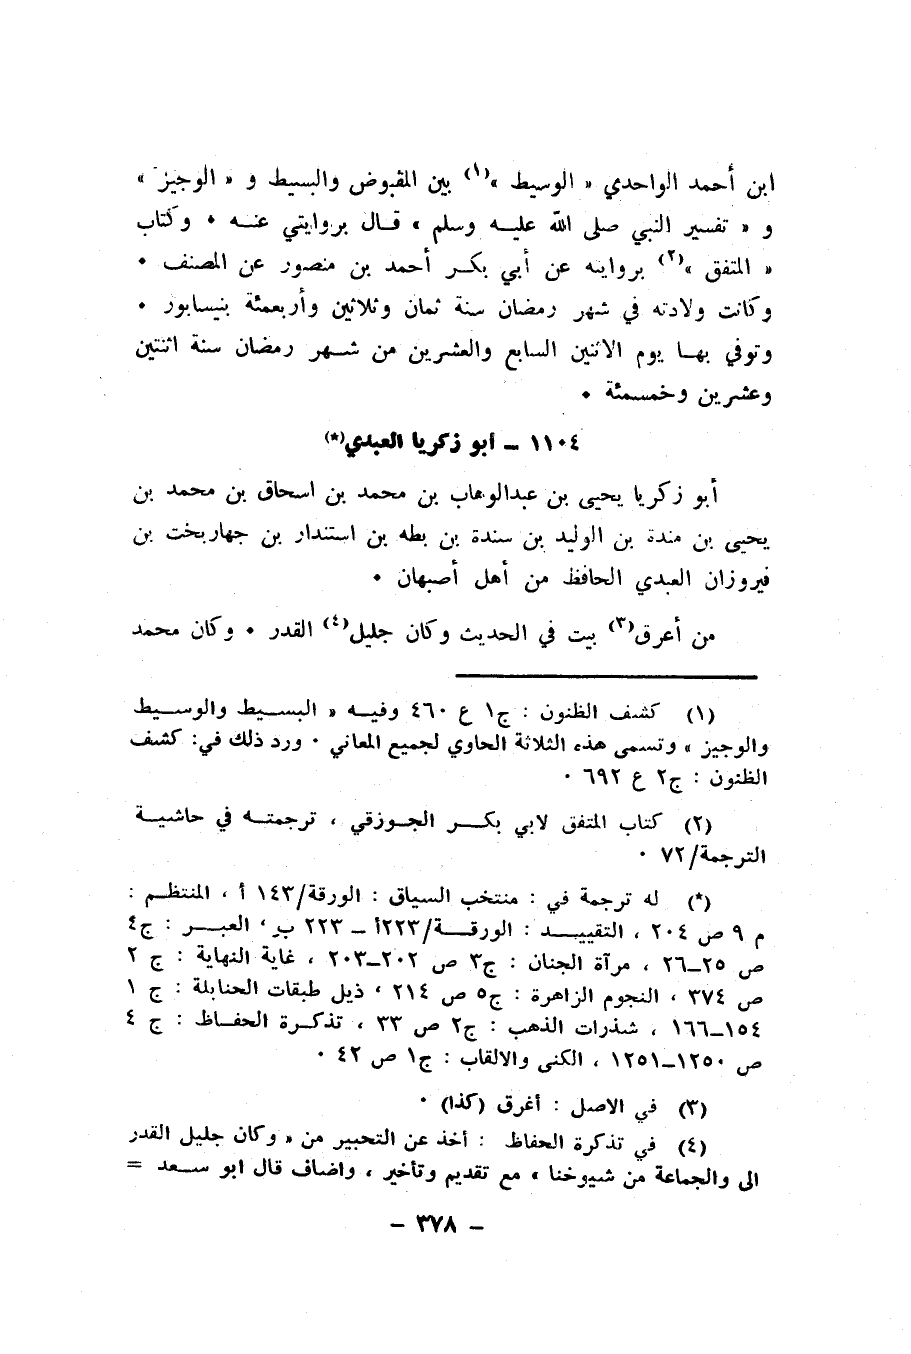 ابن أحمد الواحدي « الوسيط »(١) بين المقبوض والبسيط و « الوجيز »
و « تفسير النبي صلى الله عليه وسلم » قال بروايتي عنه • وكتاب
« المتفق »(٢) بروايته عن أبي بكر أحمد بن منصور عن المصنف •
وكانت ولادته في شهر رمضان سنة ثمان وثلاثين وأربعمئة بنيسابور •
وتوفي بها يوم الاثنين السابع والعشرين من شهر رمضان سنة اثنتين
وعشرين وخمسمئة •
١١٠٤ – ابو زكريا العبدي(*)
أبو زكريا يحيى بن عبدالوهاب بن محمد بن اسحاق بن محمد بن
يحيى بن مندة بن الوليد بن سندة بن بطه بن استندار بن جهاربخت بن
فيروزان العبدي الحافظ من أهل أصبهان •
من أعرق(٣) بيت في الحديث وكان جليل(٤) القدر • وكان محمد
(١) كشف الظنون : ج١ ع ٤٦٠ وفيه « البسيط والوسيط
والوجيز » وتسمى هذه الثلاثة الحاوي لجميع المعاني • ورد ذلك في: كشف
الظنون : ج٢ ع ٦٩٢ •
(٢) كتاب المتفق لابي بكر الجوزقي ، ترجمته في حاشية
الترجمة/٧٢ •
(*) له ترجمة في : منتخب السياق : الورقة/١٤٣ أ ، المنتظم :
م ٩ ص ٢٠٤ ، التقييد : الورقة/٢٢٣أ – ٢٢٣ ب ، العبر : ج٤
ص ٢٥–٢٦ ، مرآة الجنان : ج٣ ص ٢٠٢–٢٠٣ ، غاية النهاية : ج ٢
ص ٣٧٤ ، النجوم الزاهرة : ج٥ ص ٢١٤ ، ذيل طبقات الحنابلة : ج ١
١٥٤–١٦٦ ، شذرات الذهب : ج٢ ص ٣٣ ، تذكرة الحفاظ : ج ٤
ص ١٢٥٠–١٢٥١ ، الكنى والالقاب : ج١ ص ٤٢ •
(٣) في الاصل : أغرق (كذا) •
(٤) في تذكرة الحفاظ : أخذ عن التحبير من « وكان جليل القدر
الى والجماعة من شيوخنا » مع تقديم وتأخير ، واضاف قال ابو سعد =
– ٣٧٨ –